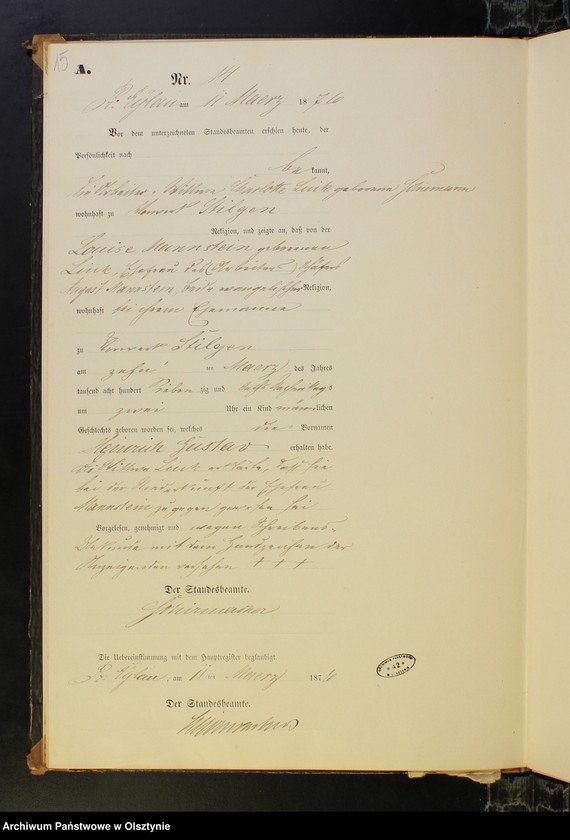 15
A.
Nr.
Pr. Eylau am 11 Maerz 1876
Vor dem unterzeichneten Standesbeamten erschien heute, der
Persönlichkeit nach
be kannt,
die Arbeiter-Wittwe Charlotte Linck geborene
wohnhaft zu Vorwerk Stilgen
Religion, und zeigte an, daß von der
Louise Mannstein geborenen
Linck, Ehefrau des
August Mannstein, beide evangelischer Religion,
wohnhaft bei ihrem Ehemanne
zu Vorwerk Stilgen
am zehn ten Maerz des Jahres
tausend acht hundert sieben zig und sechs Nachmittags
um zwei Uhr ein Kind männlichen
Geschlechts geboren worden sei, welches die Vornamen
Heinrich Gustav erhalten habe.
die Wittwe Linck erklärte, daß sie
bei der Niederkunft der Ehefrau
Mannstein zugegen gewesen sei
Vorgelesen, genehmigt und wegen Schreibens-
Unkunde mit dem Handzeichen der
Anzeigenden versehen + + +
Der Standesbeamte.
Schirmacher
Die Uebereinstimmung mit dem Hauptregister beglaubigt.
Pr. Eylau, am 11 ten Maerz 1876
Der Standesbeamte.
Schirmacher
42
Archiwum Państwowe w Olsztynie